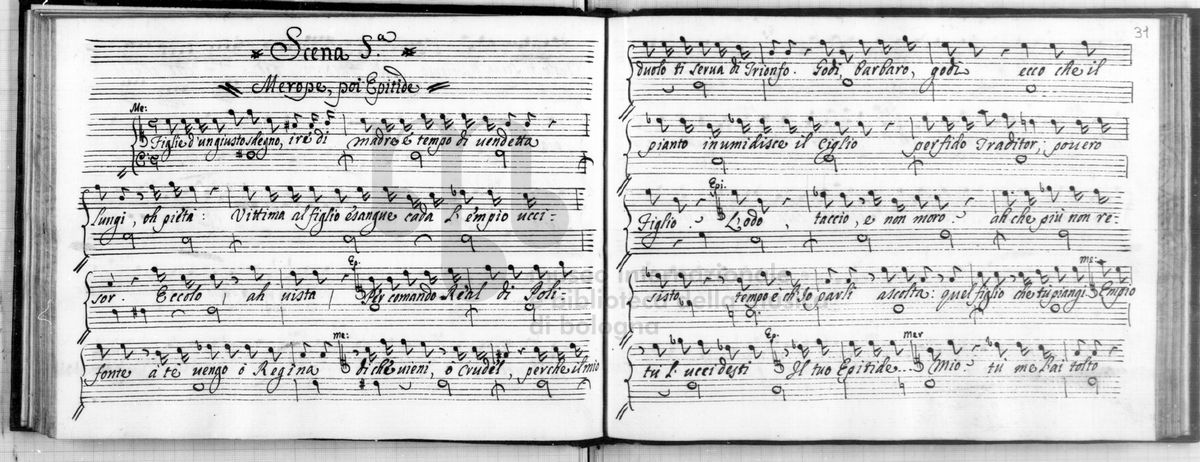 Scena 5.a
Merope, poi Epitide
Me:
Figlie d'un giusto sdegno, ire di madre è tempo di vendetta
lungi, oh pietà: Vittima al figlio esangue cada l'empio ucci-
Ep.
sor. Eccolo, ah vista, Per comando Real di Poli
me:
fonte à te vengo ò Regina di che vieni, o crudel, perche il mio
31
duolo ti serva di Trionfo. Godi, barbaro, godi ecco che il
pianto inumidisce il Ciglio perfido Traditor, povero
Epi.
Figlio. L'odo, taccio, e non moro. ah che più non re-
me:
sisto tempo è ch'io parli ascolta: quel figlio che tu piangi Empio
Ep. Mer
tù l'uccidesti Il tuo Epitide... Mio tu me l'ai tolto
museo internazionale
biblioteca della
di bologna